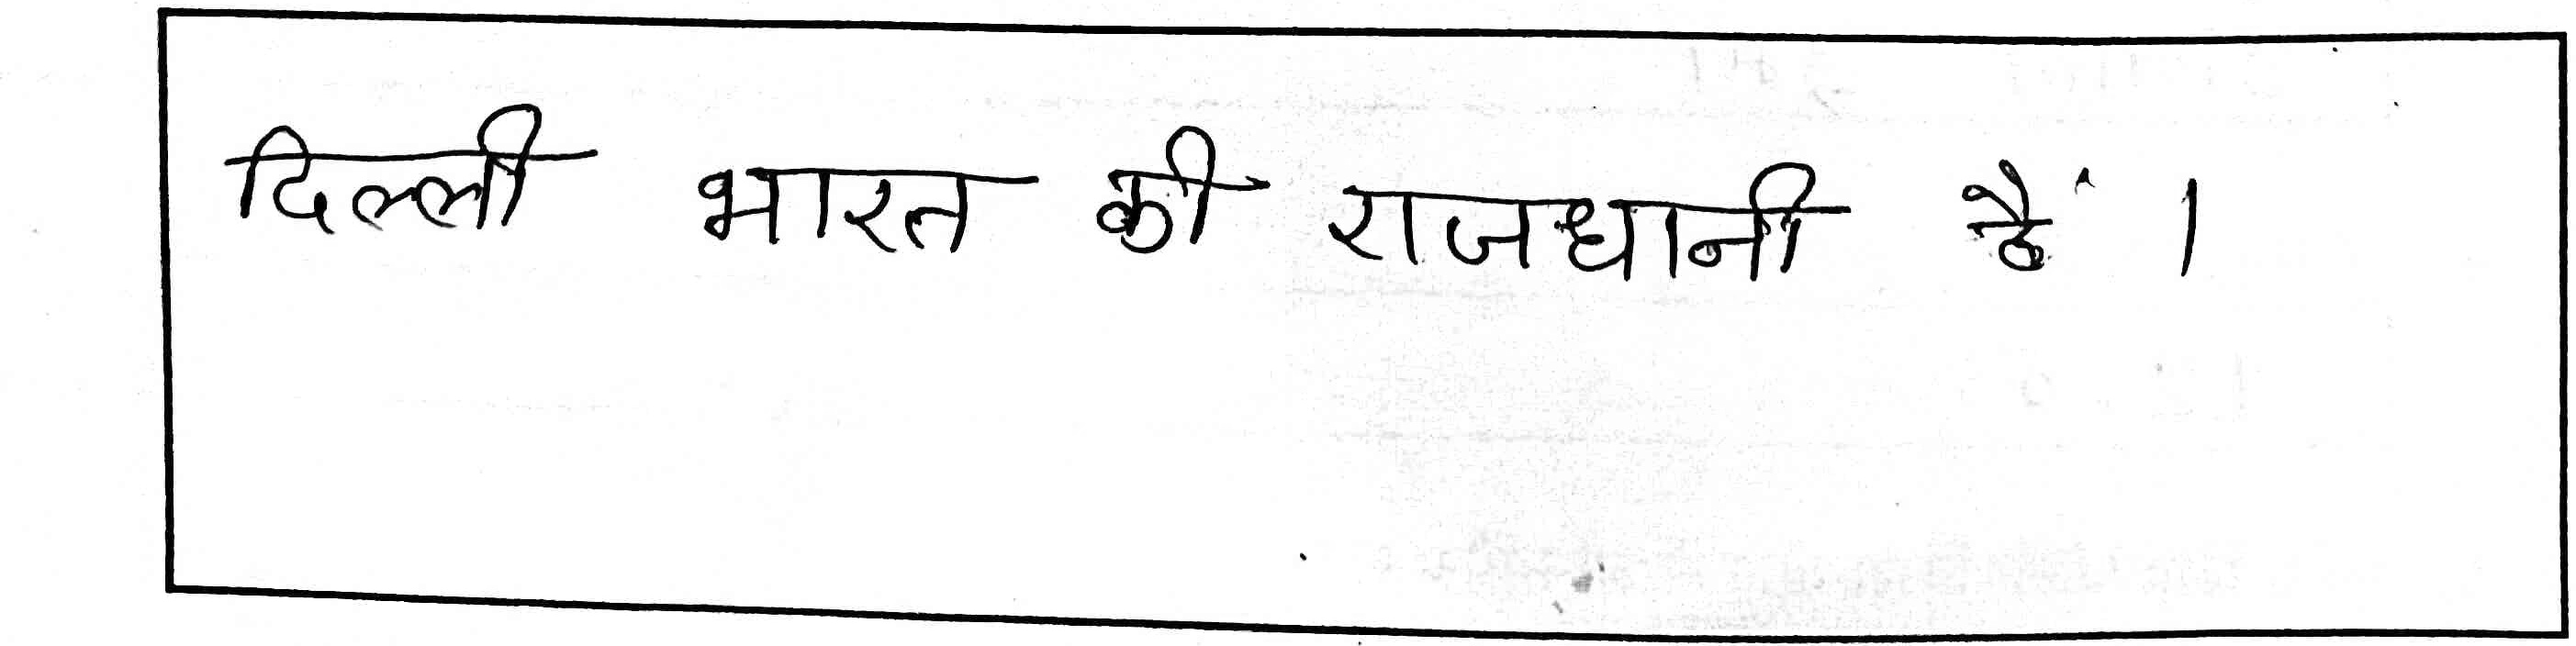 दिल्ली भारत की राजधानी है ।